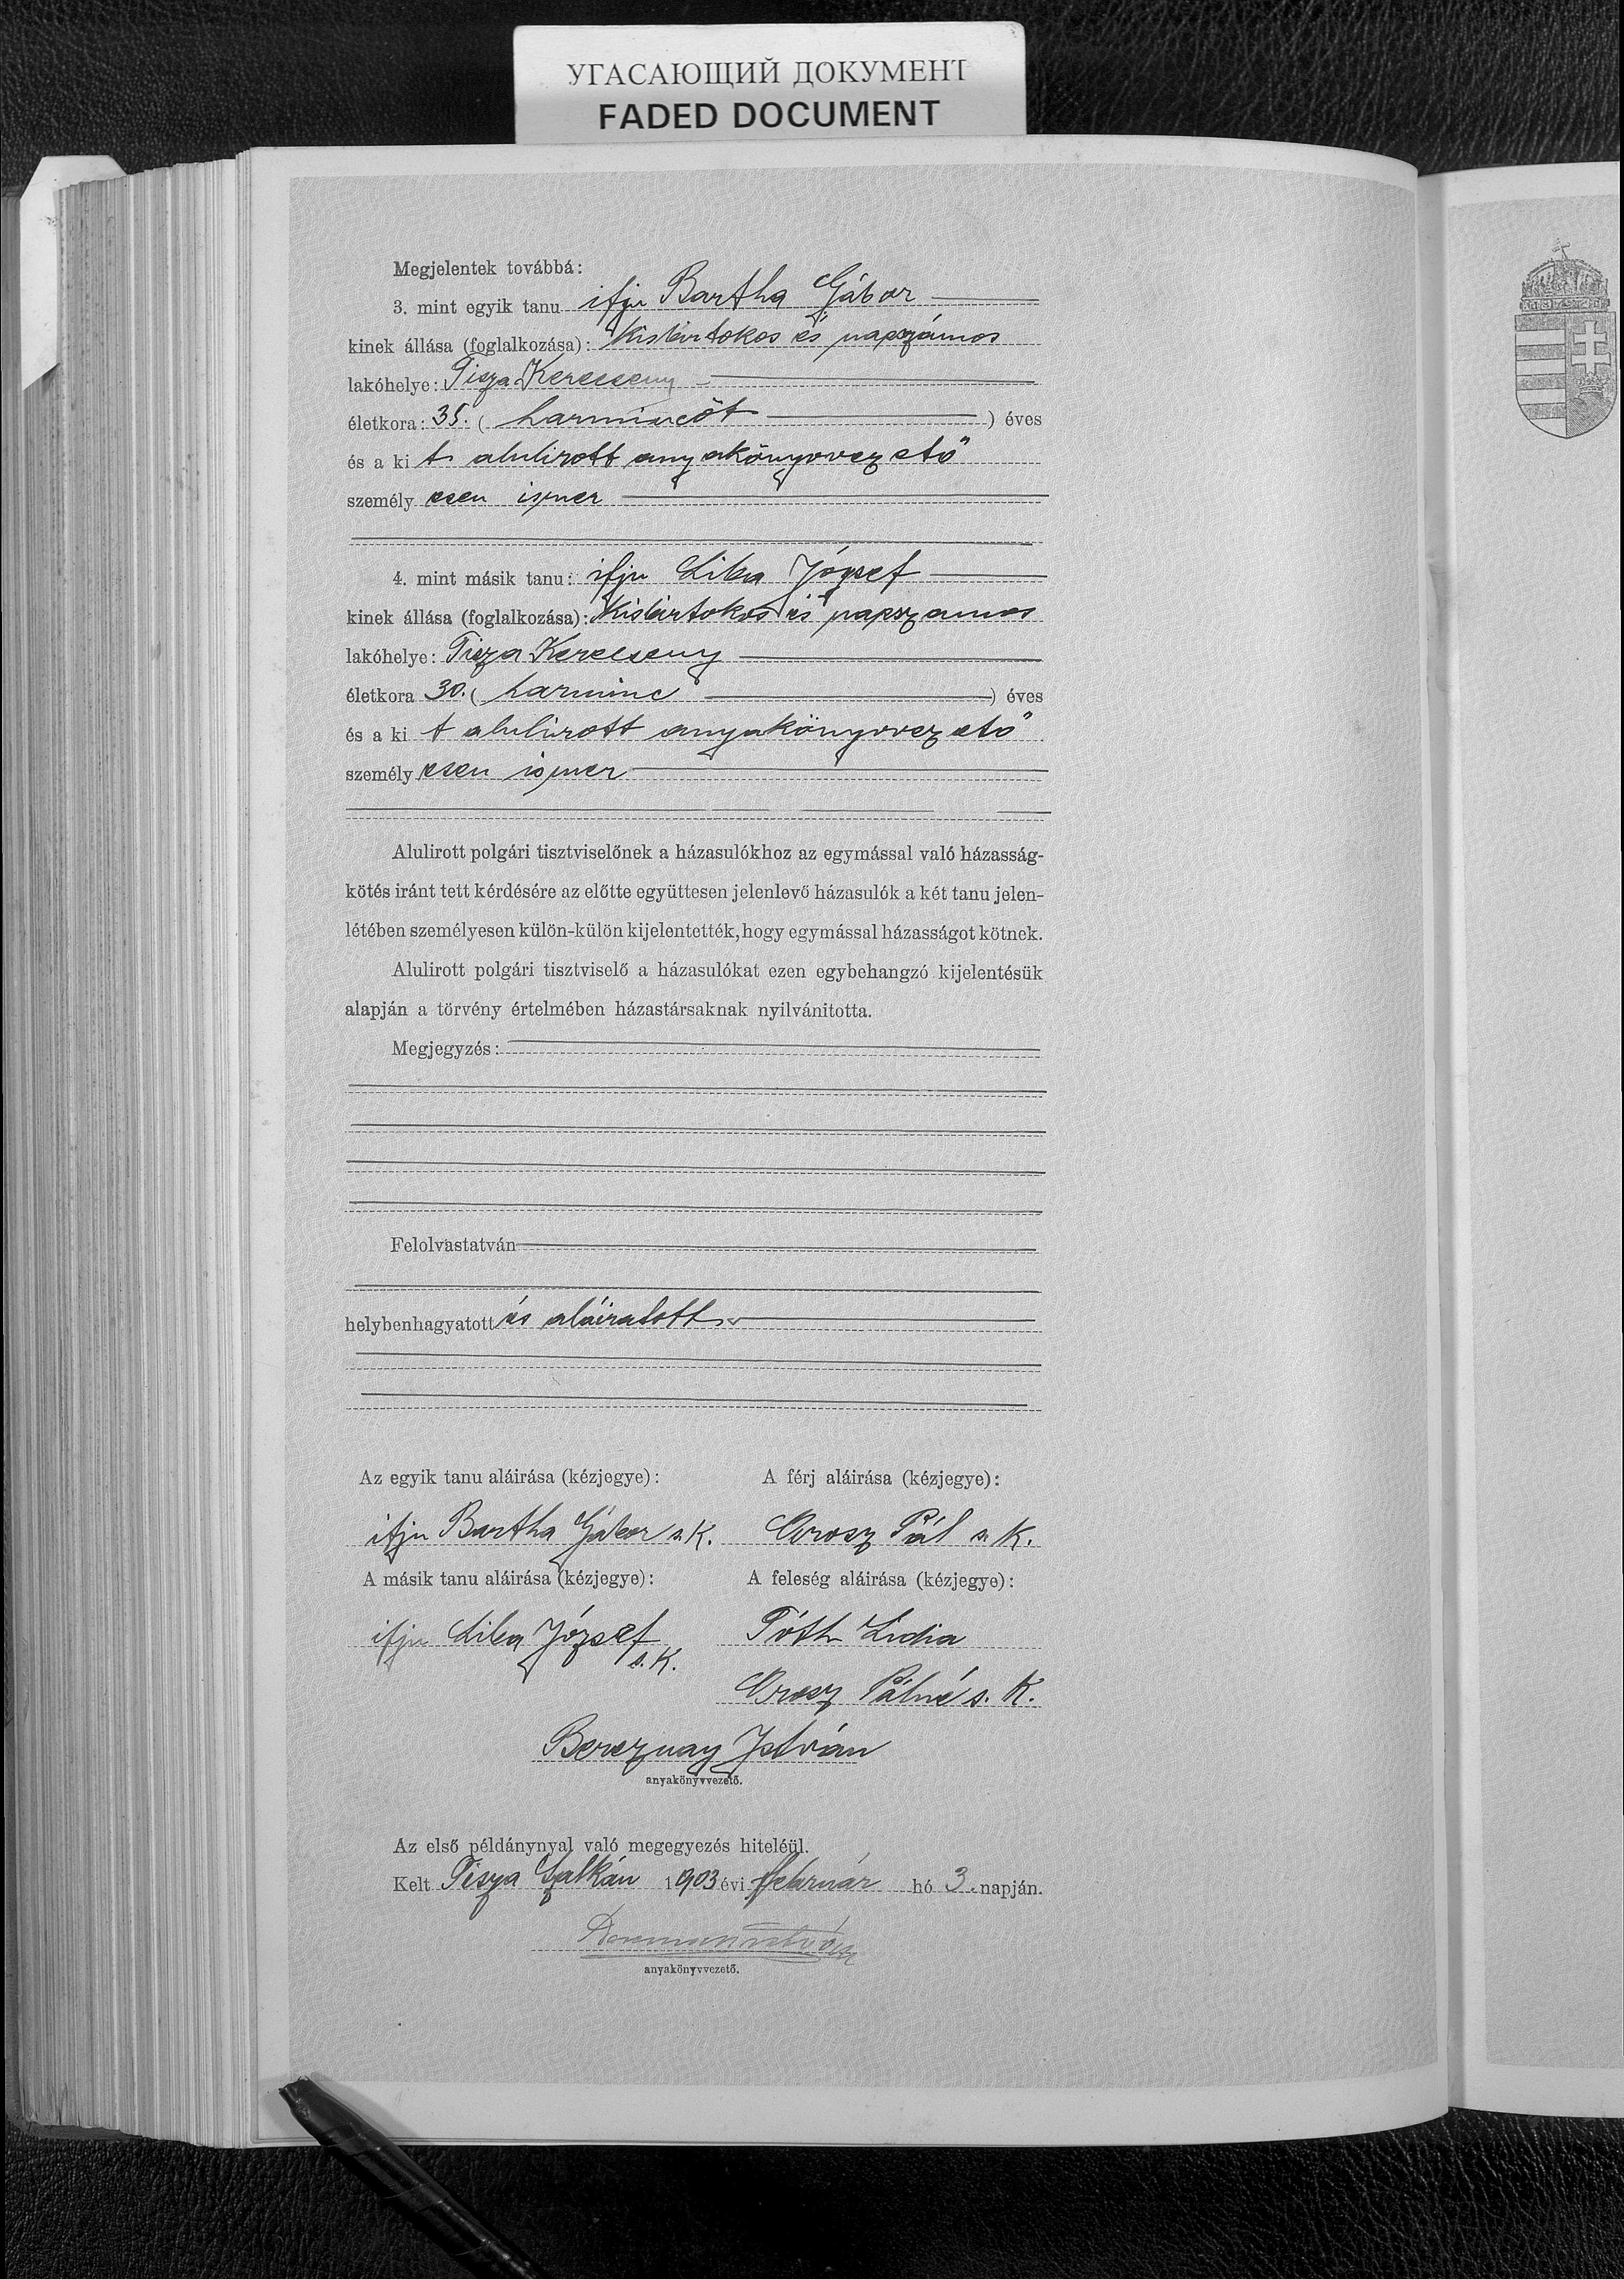 УГАСАЮЩИЙ ДОКУМЕНТ
FADED DOCUMENT
Megjelentek továbbá:
3. mint egyik tanu ifju Bartha Gábor
kinek állása (foglalkozása): Kisbirtokos és napszámos
lakóhelye: Tisza Kerecseny
életkora: 35. (harmincöt) éves
és a ki t alulirott anyakönyvvezető
személyesen ismer
4. mint másik tanu: ifju Liba József
kinek állása (foglalkozása): Kisbirtokos és napszamos
lakóhelye: Tisza Kerecseny
életkora 30. (harminc) éves
és a ki t alulirott anyakönyvvezető
személyesen ismer
Alulirott polgári tisztviselőnek a házasulókhoz az egymással való házasság-
kötés iránt tett kérdésére az előtte együttesen jelenlevő házasulók a két tanu jelen-
létében személyesen külön-külön kijelentették, hogy egymással házasságot kötnek.
Alulirott polgári tisztviselő a házasulókat ezen egybehangzó kijelentésük
alapján a törvény értelmében házastársaknak nyilvánitotta.
Megjegyzés:
Felolvastatván
helybenhagyatott és aláiratott
Az egyik tanu aláirása (kézjegye): A férj aláirása (kézjegye):
ifju Bartha Gábor s. k. Orosz Pál s. k.
A másik tanu aláirása (kézjegye): A feleség aláirása (kézjegye):
ifju Liba József Tóth Lidia
s. k.
Orosz Pálné s. k.
Bereznay István
anyakönyvvezető.
Az első példánynyal való megegyezés hiteléül.
Kelt Tisza Szalkán 1903 évi február hó 3. napján.
anyakönyvvezető.